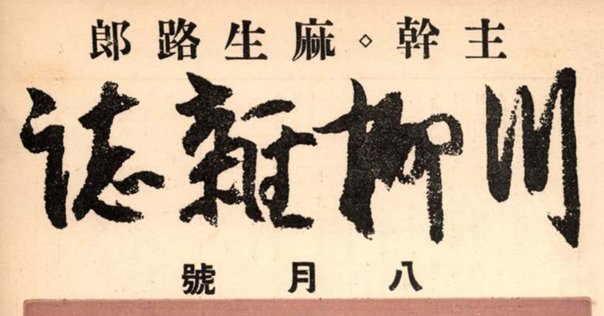 主幹◇麻生路郎
川柳雜誌
八月號